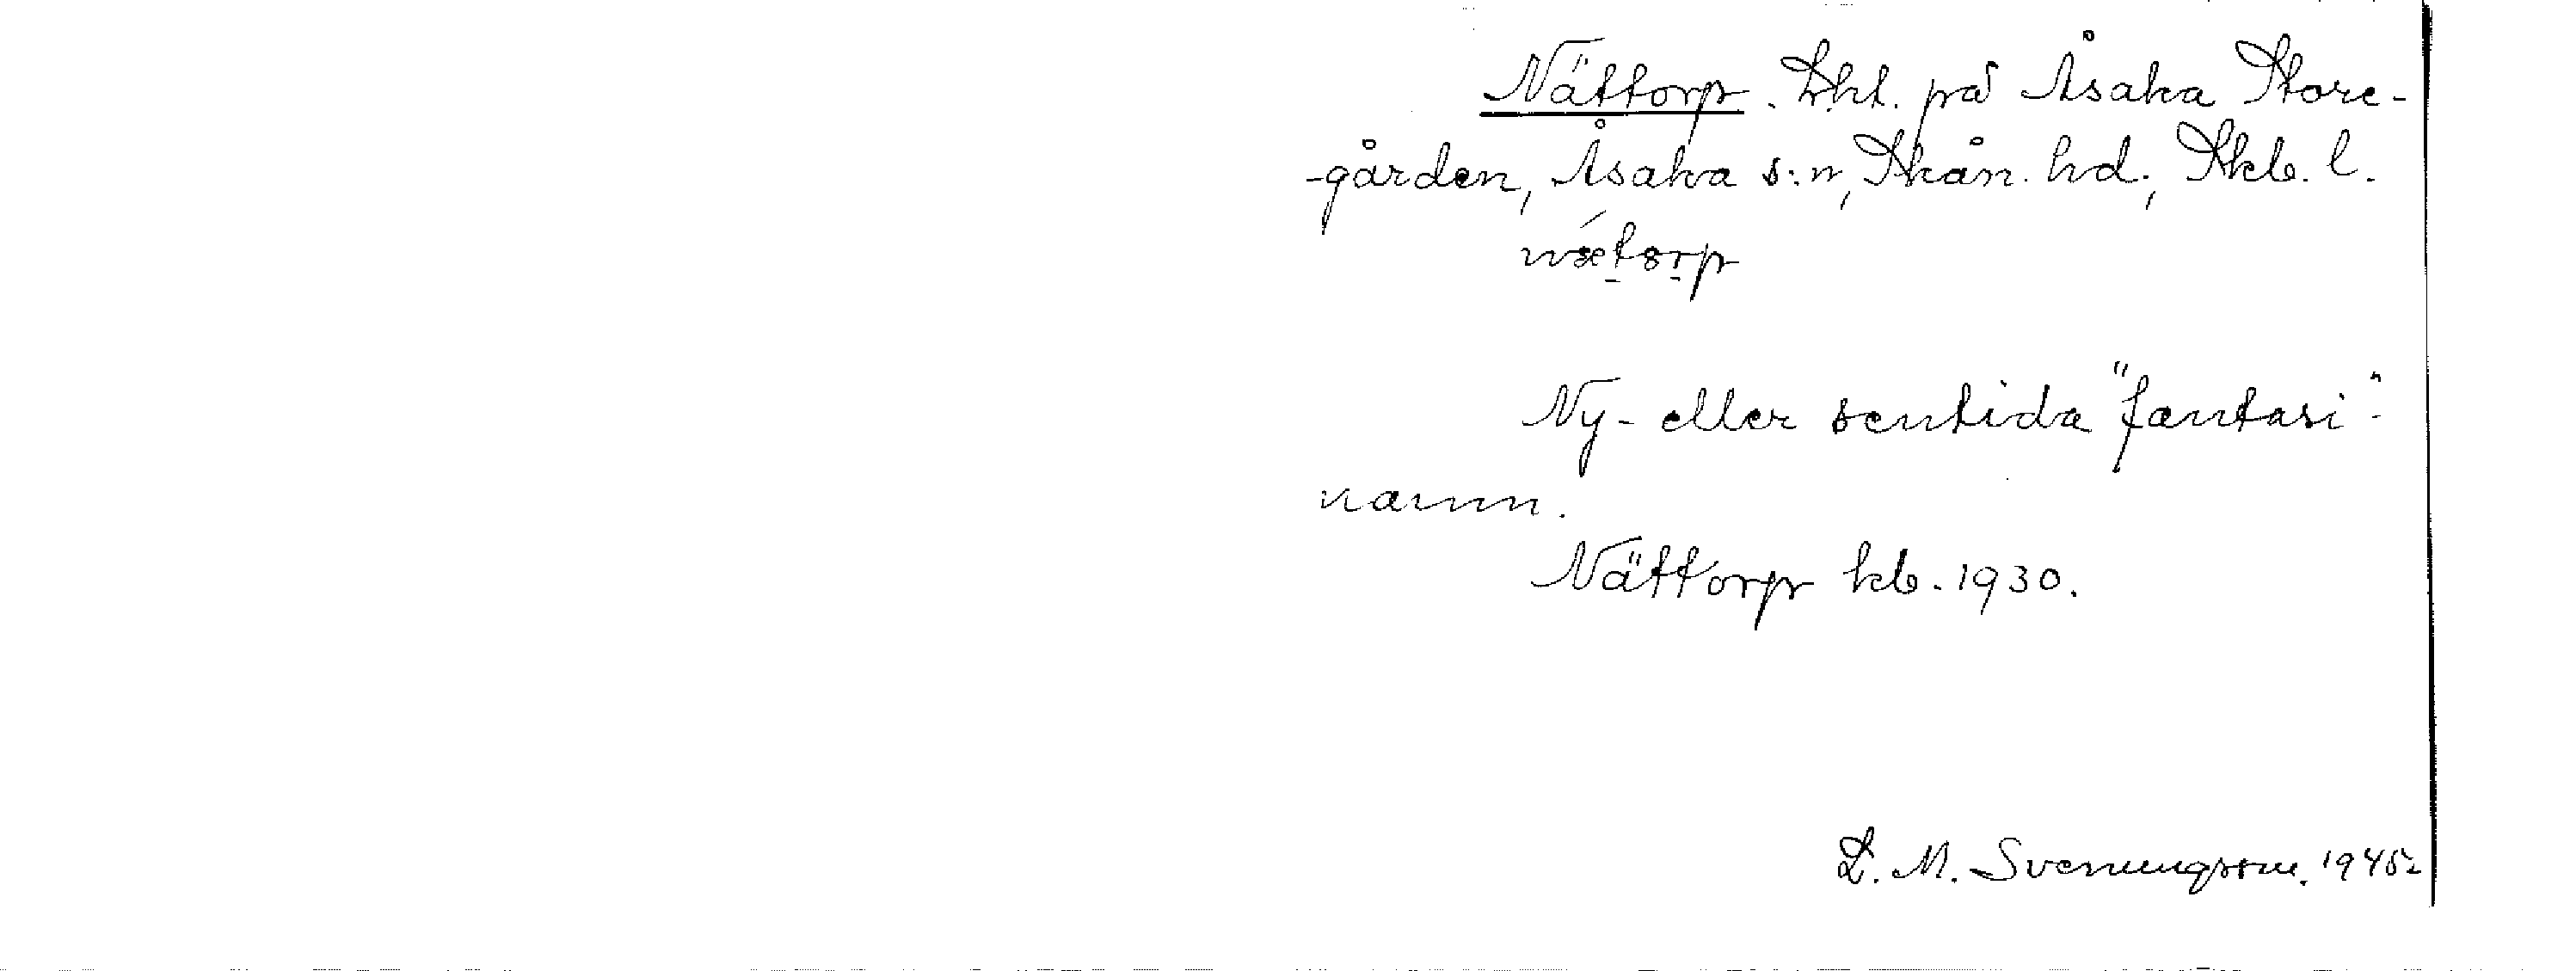 Nättorp. Lht. på Åsaka Store-
-gården, Åsaka s:n, Skån. hd., Skb. l.
nǽtorp
Ny- eller sentida "fantasi"-
namn.
Nättorp kb. 1930.
L. M. Svenungsson. 1945.